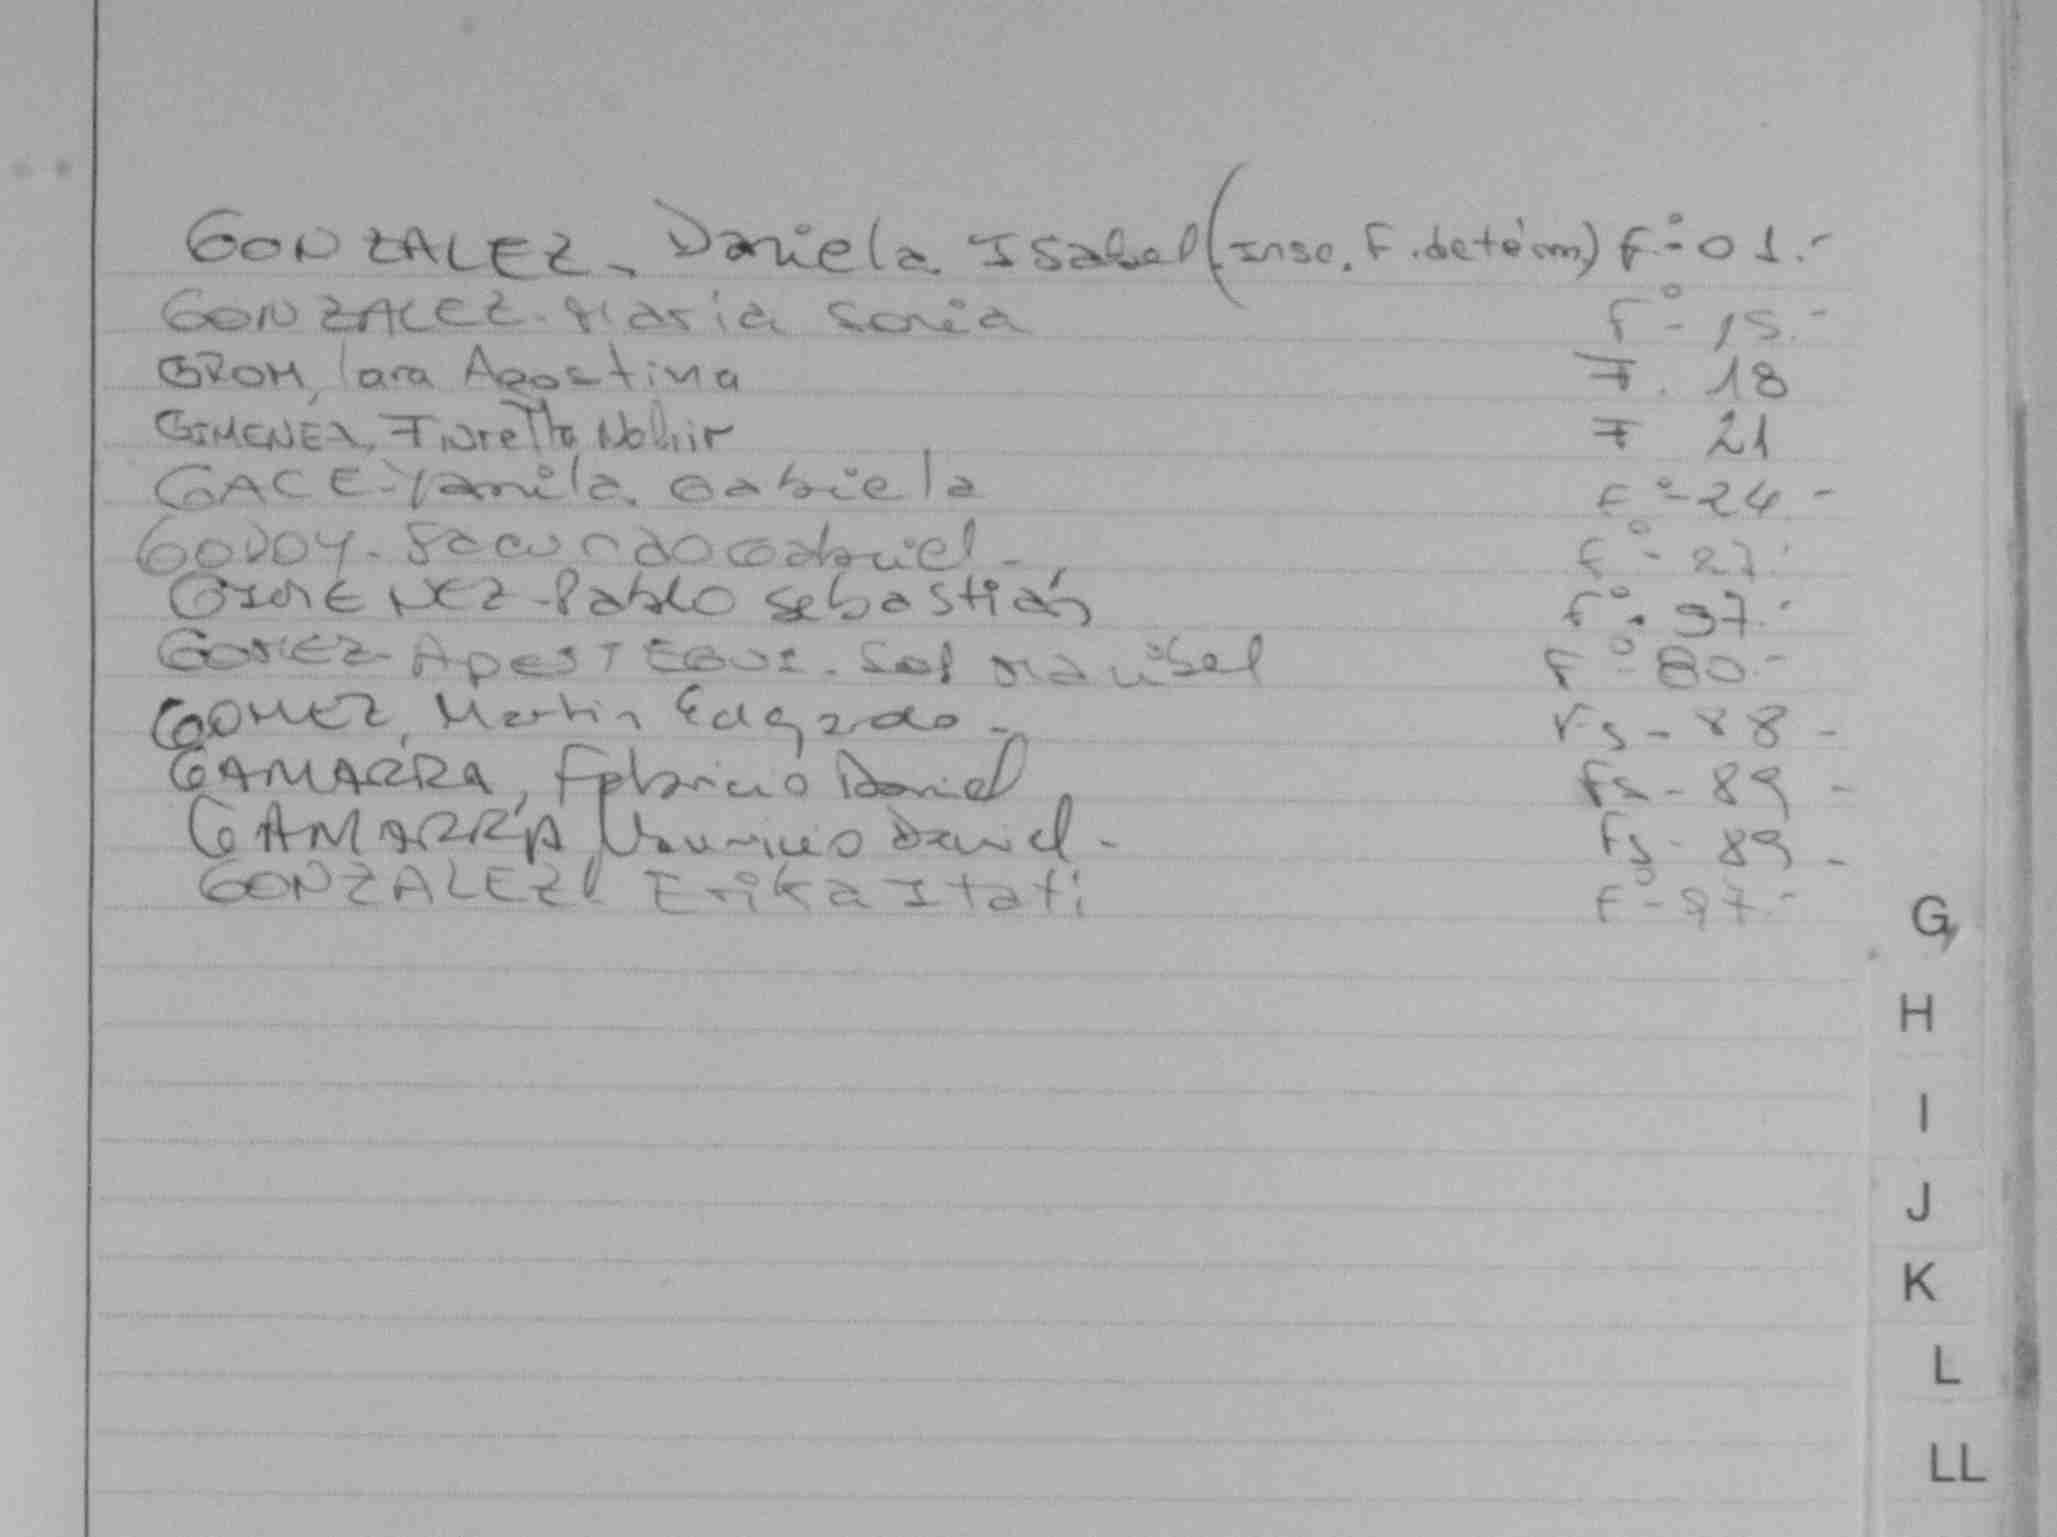 GONZALEZ, Daniela Isabel (Insc. F. deterim) Fº- 01.-
GONZALEZ- Maria Sonia Fº- 15.-
GROH, Iara Agostina F. 18
GIMENEZ, Fiorella Nohir F 21
GACE- Yamila Gabriela Fº- 24 -
GODOY- Facundo Gabriel - Fº- 27.
GIMENEZ- Pablo Sebastián Fº- 37.-
GOMEZ APESTEGUI- Sol Marisel Fº- 80.-
GOMEZ, Martin Edgardo - Fs - 88 -
GAMARRA, Fabricio Daniel Fs - 89 -
GAMARRA, Mauricio Daniel - Fs - 89 -
GONZALEZ Erika Itati Fº- 97.-
G
H
I
J
K
L
LL